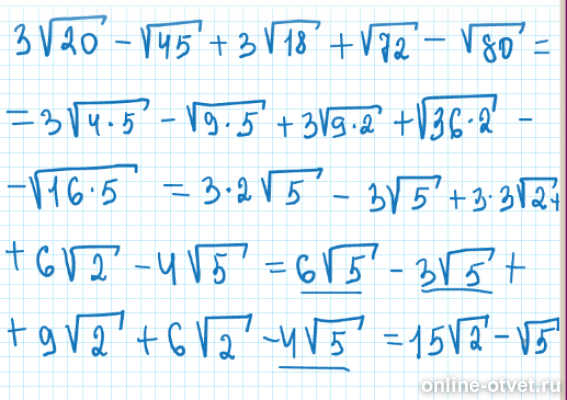 3√20 - √45 + 3√18 + √72 - √80 =
= 3√4·5 - √9·5 + 3√9·2 + √36·2 -
- √16·5 = 3·2√5 - 3√5 + 3·3√2 +
+ 6√2 - 4√5 = 6√5 - 3√5 +
+ 9√2 + 6√2 - 4√5 = 15√2 - √5
online-otvet.ru